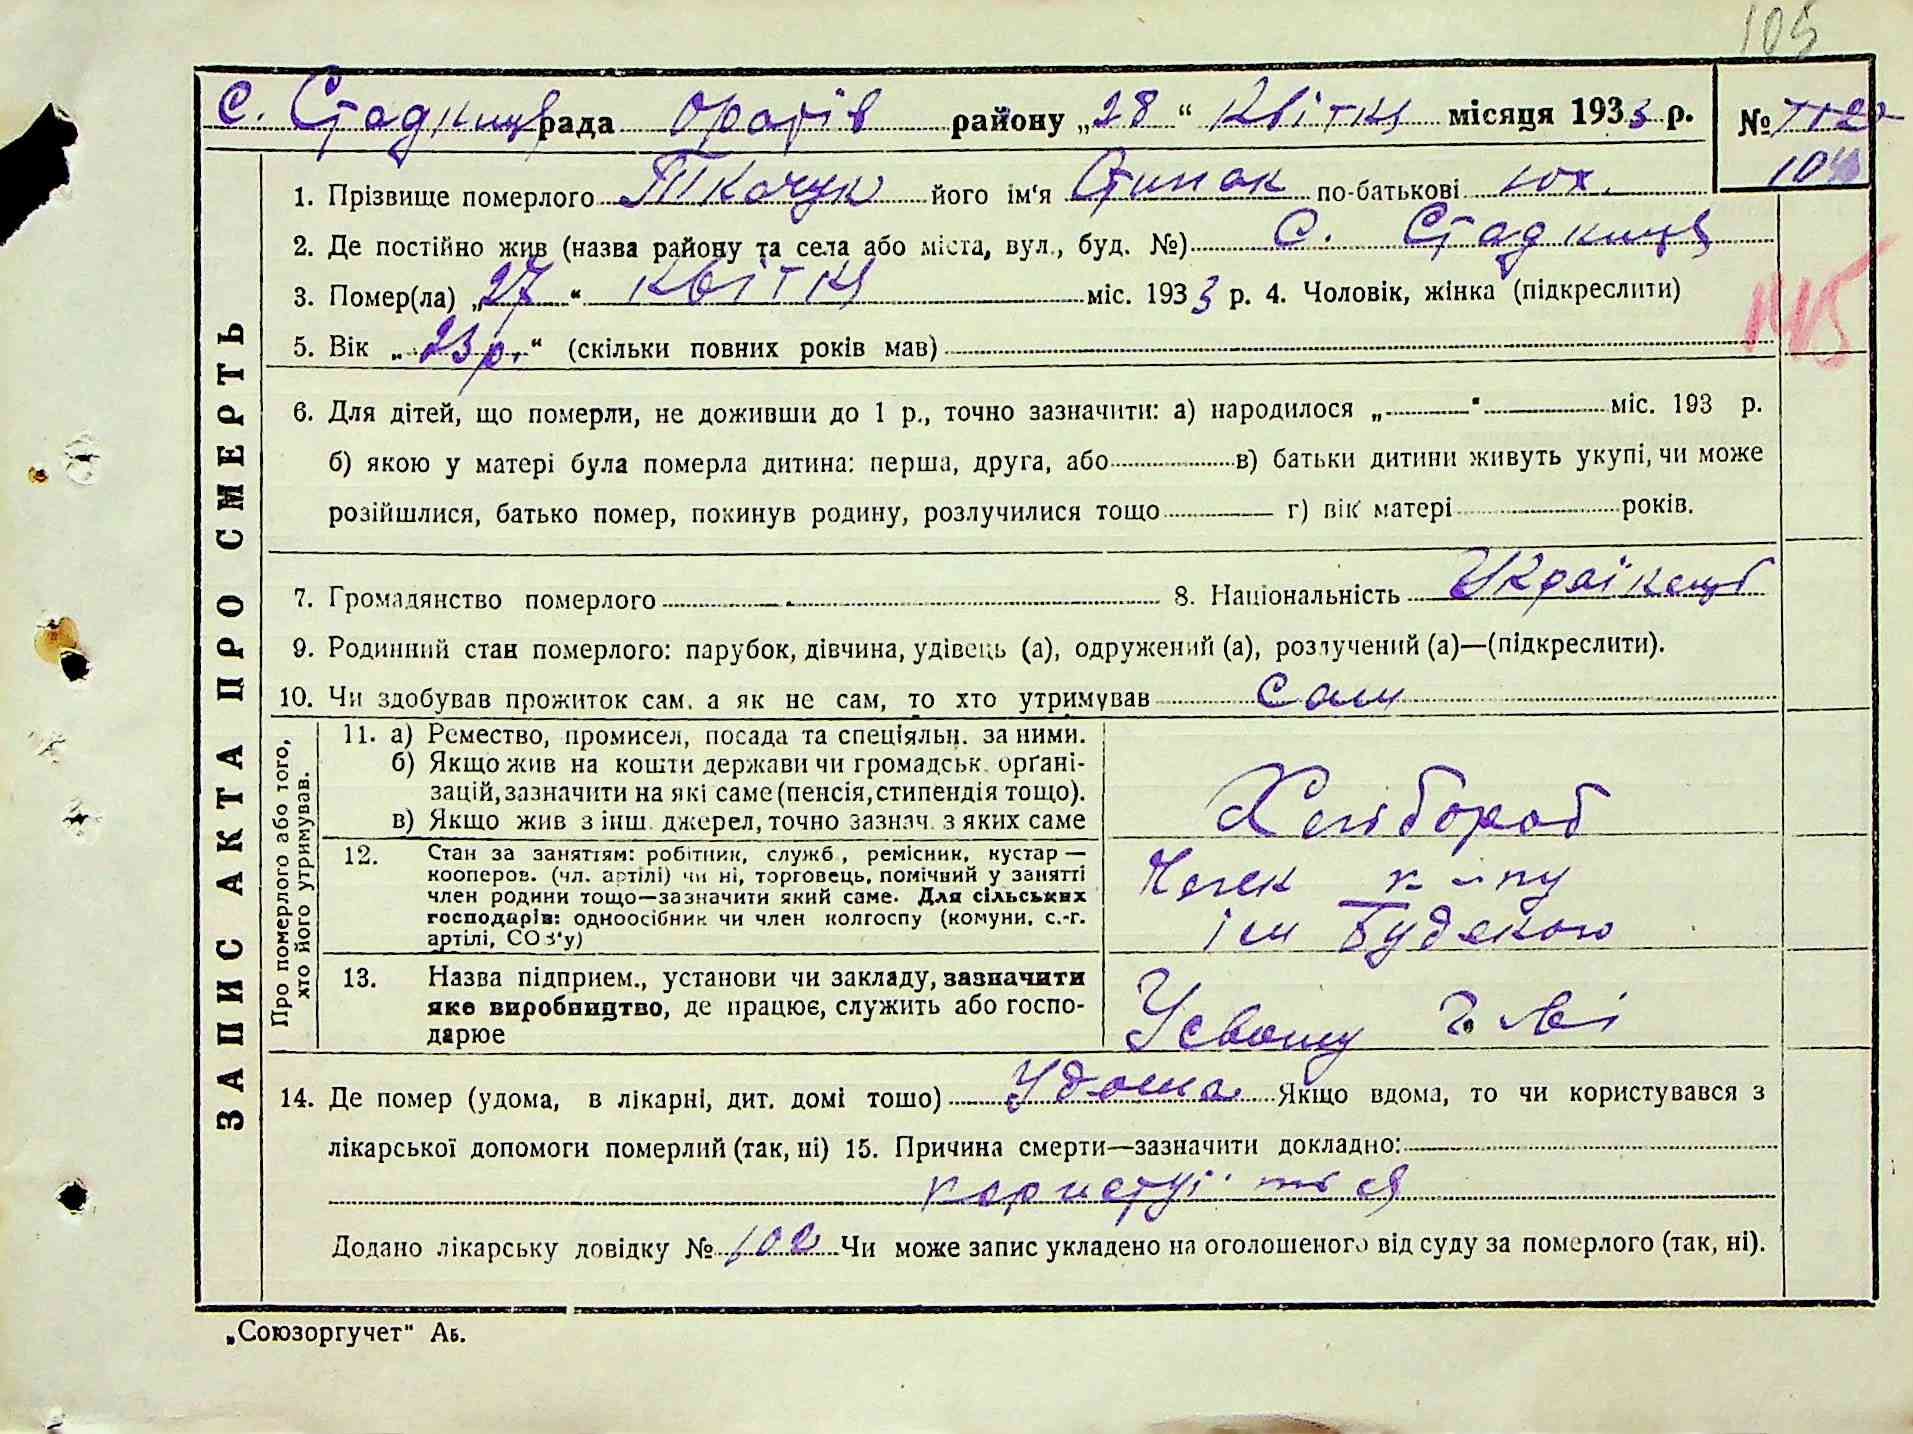 105
С. Стадниця рада Оратів району „28“ Квітня місяця 1933 р. №
104
1. Прізвище померлого Ткачук його ім‘я Степан по-батькові Юх.
2. Де постійно жив (назва району та села або міста, вул., буд. №) С. Стадниця
3. Помер(ла) „27“ Квітня міс. 1933 р. 4. Чоловік, жінка (підкреслити)
145
5. Вік „23 р.“ (скільки повних років мав)
6. Для дітей, що померли, не доживши до 1 р., точно зазначити: а) народилося „ “ міс. 193 р.
б) якою у матері була померла дитина: перша, друга, або в) батьки дитини живуть укупі, чи може
розійшлися, батько помер, покинув родину, розлучилися тощо г) вік матері років.
7. Громадянство померлого 8. Національність Українець
9. Родинний стан померлого: парубок, дівчина, удівець (а), одружений (а), розлучений (а)—(підкреслити).
10. Чи здобував прожиток сам, а як не сам, то хто утримував сам
ЗАПИС АКТА ПРО СМЕРТЬ
Про померлого або того,
хто його утримував.
11. а) Ремество, промисел, посада та спеціяльн. за ними.
б) Якщо жив на кошти держави чи громадськ. орґані-
зацій, зазначити на які саме (пенсія, стипендія тощо).
в) Якщо жив з інш. джерел, точно зазнач. з яких саме
Хлібороб
12. Стан за заняттям: робітник, служб., ремісник, кустар—
кооперов. (чл. артілі) чи ні, торговець, помічний у занятті
член родини тощо—зазначити який саме. Для сільських
господарів: одноосібник чи член колгоспу (комуни, с.-г.
артілі, СОЗ‘у)
Член к-пу
ім Будьоного
13. Назва підприєм., установи чи закладу, зазначити
яке виробництво, де працює, служить або госпо-
дарює
Усвому
14. Де помер (удома, в лікарні, дит. домі тошо) Удома Якщо вдома, то чи користувався з
лікарської допомоги померлий (так, ні) 15. Причина смерти—зазначити докладно:
Додано лікарську довідку № 102 Чи може запис укладено на оголошеного від суду за померлого (так, ні).
„Союзоргучет“ Аб.